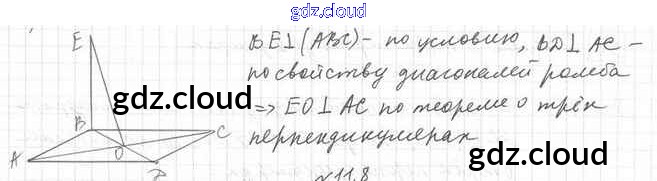 gdz.cloud
E
BE⊥(ABC) - по условию, BD⊥AC -
по свойству диагоналей ромба
gdz.cloud
⇒ EO⊥AC по теореме о трёх
B
C
O
перпендикулярах
A
D
gdz.cloud
№11.8